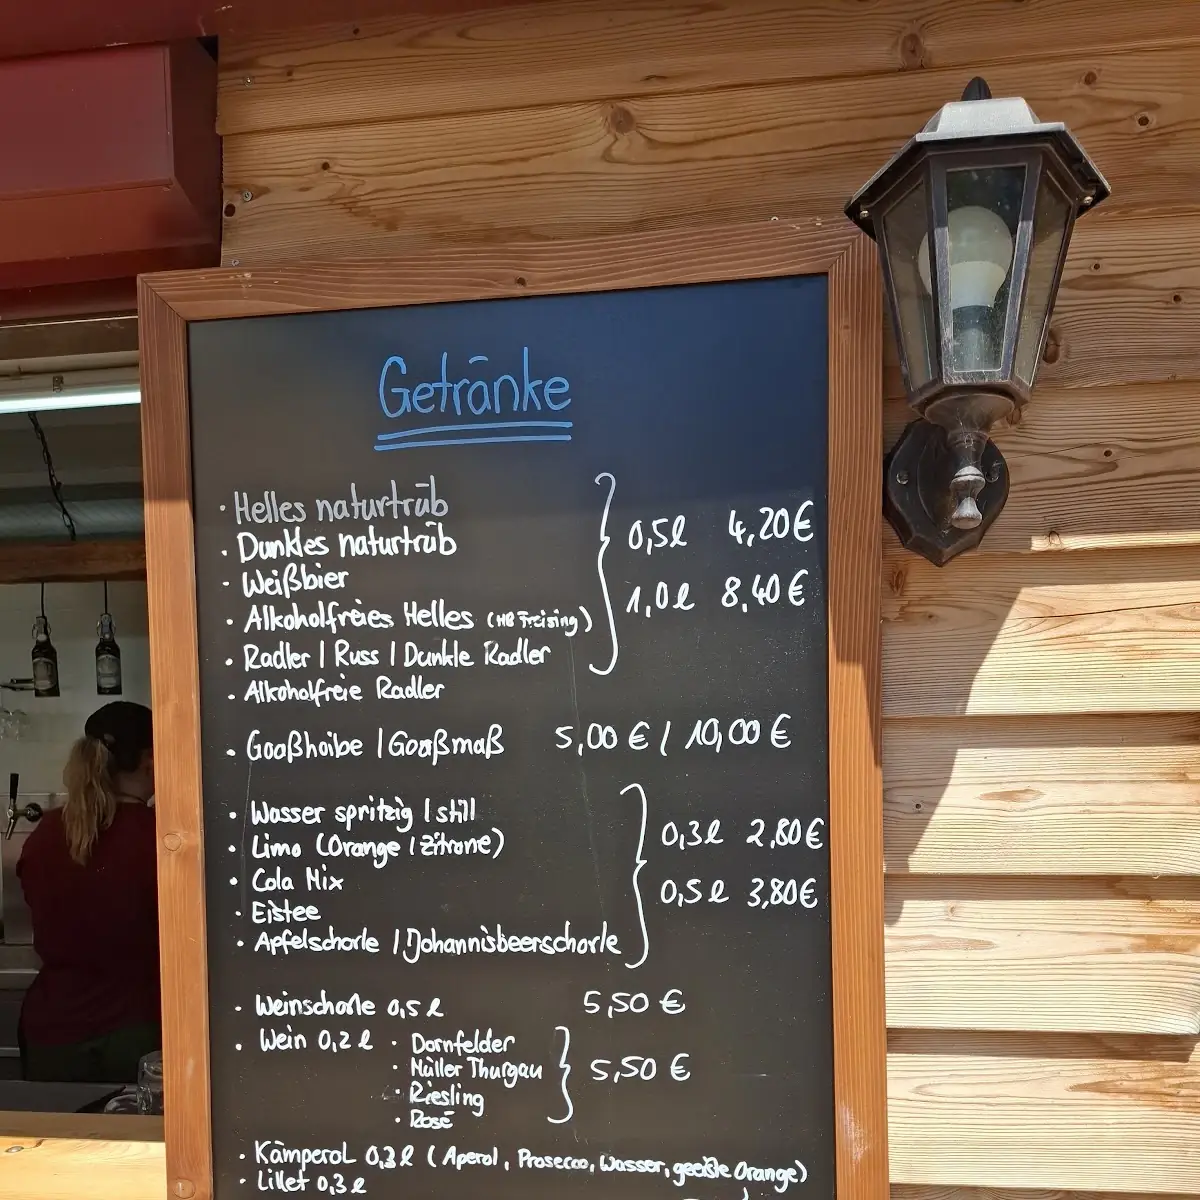 Getränke
· Helles naturtrüb
· Dunkles naturtrüb
0,5l 4,20€
· Weißbier
1,0l 8,40€
· Alkoholfreies Helles (HB Freising)
· Radler / Russ / Dunkle Radler
· Alkoholfreie Radler
· Goaßhoibe / Goaßmaß 5,00 € / 10,00 €
· Wasser spritzig / still
· Limo (Orange / Zitrone)
0,3l 2,80€
· Cola Mix
0,5l 3,80€
· Eistee
· Apfelschorle / Johannisbeerschorle
· Weinschorle 0,5l 5,50 €
· Wein 0,2l · Dornfelder
· Müller Thurgau 5,50 €
· Riesling
· Rosé
· Kämperol 0,3l (Aperol, Prosecco, Wasser, geeiste Orange)
· Lillet 0,3l